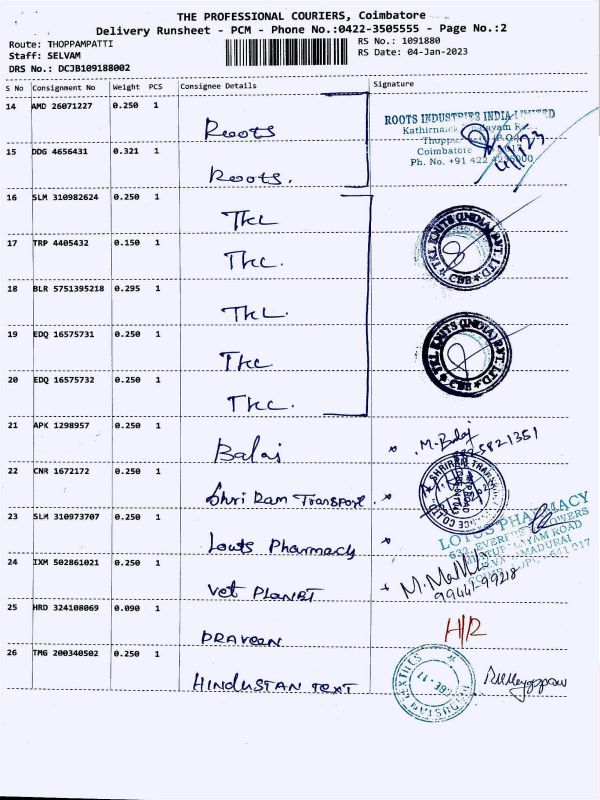 THE PROFESSIONAL COURIERS, Coimbatore
Delivery Runsheet - PCM - Phone No.:0422-3505555 - Page No.:2
Route: THOPPAMPATTI
Staff: SELVAM
DRS No.: DCJB109188002
RS No.: 1091880
RS Date: 04-Jan-2023
S No Consignment No Weight PCS Consignee Details Signature
14 AMD 26071227 0.250 1 Roots
ROOTS INDUSTRIES INDIA LIMITED
Coimbatore
Ph. No. +91 422
4/1/23
15 DDG 4656431 0.321 1 Roots.
16 SLM 310982624 0.250 1 TKL
TKL KNITS (INDIA) PVT. LTD
CBE
17 TRP 4405432 0.150 1 TKL.
18 BLR 5751395218 0.295 1 TKL.
19 EDQ 16575731 0.250 1 TKL
TKL KNITS (INDIA) PVT. LTD
CBE
20 EDQ 16575732 0.250 1 TKL.
21 APK 1298957 0.250 1 Balaj
M. Balaj
22 CNR 1672172 0.250 1 Shri Ram Transport.
23 SLM 310973707 0.250 1 Louts Pharmacy
LOTUS PHARMACY
24 IXM 502861021 0.250 1 Vet PLANET
99441-99218
25 HRD 324108069 0.090 1 PRAVEEN
H/R
26 TMG 200340502 0.250 1 HINDUSTAN TEXT